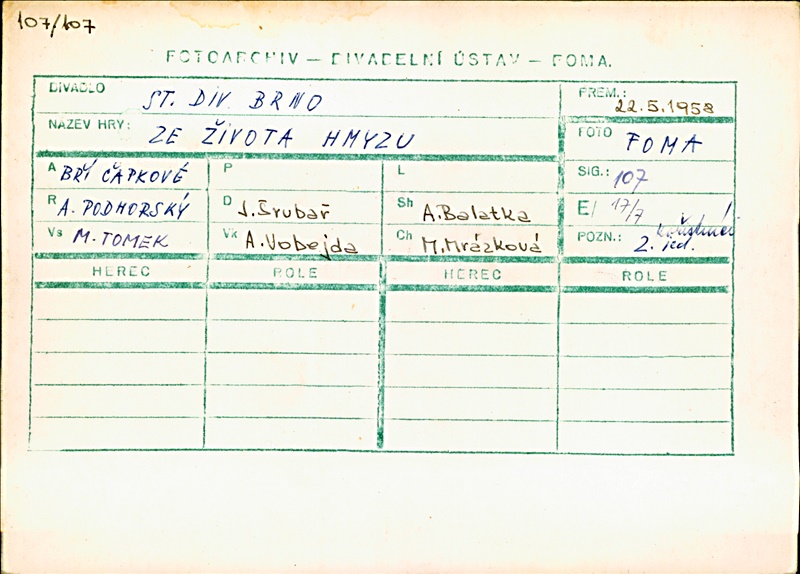 107/107
FOTOARCHIV — DIVADELNÍ ÚSTAV — FOMA.
DIVADLO ST. DIV. BRNO
PREM.: 22.5.1958
NÁZEV HRY: ZE ŽIVOTA HMYZU
FOTO FOMA
A BŘÍ ČAPKOVÉ P L
SIG.: 107
R A. PODHORSKÝ D J. Šrubař Sh A. Balatka
E/ 17/7
Vs M. TOMEK Vk A. Vobejda Ch M. Mrázková
POZN.: 2. jed.
HEREC ROLE HEREC ROLE